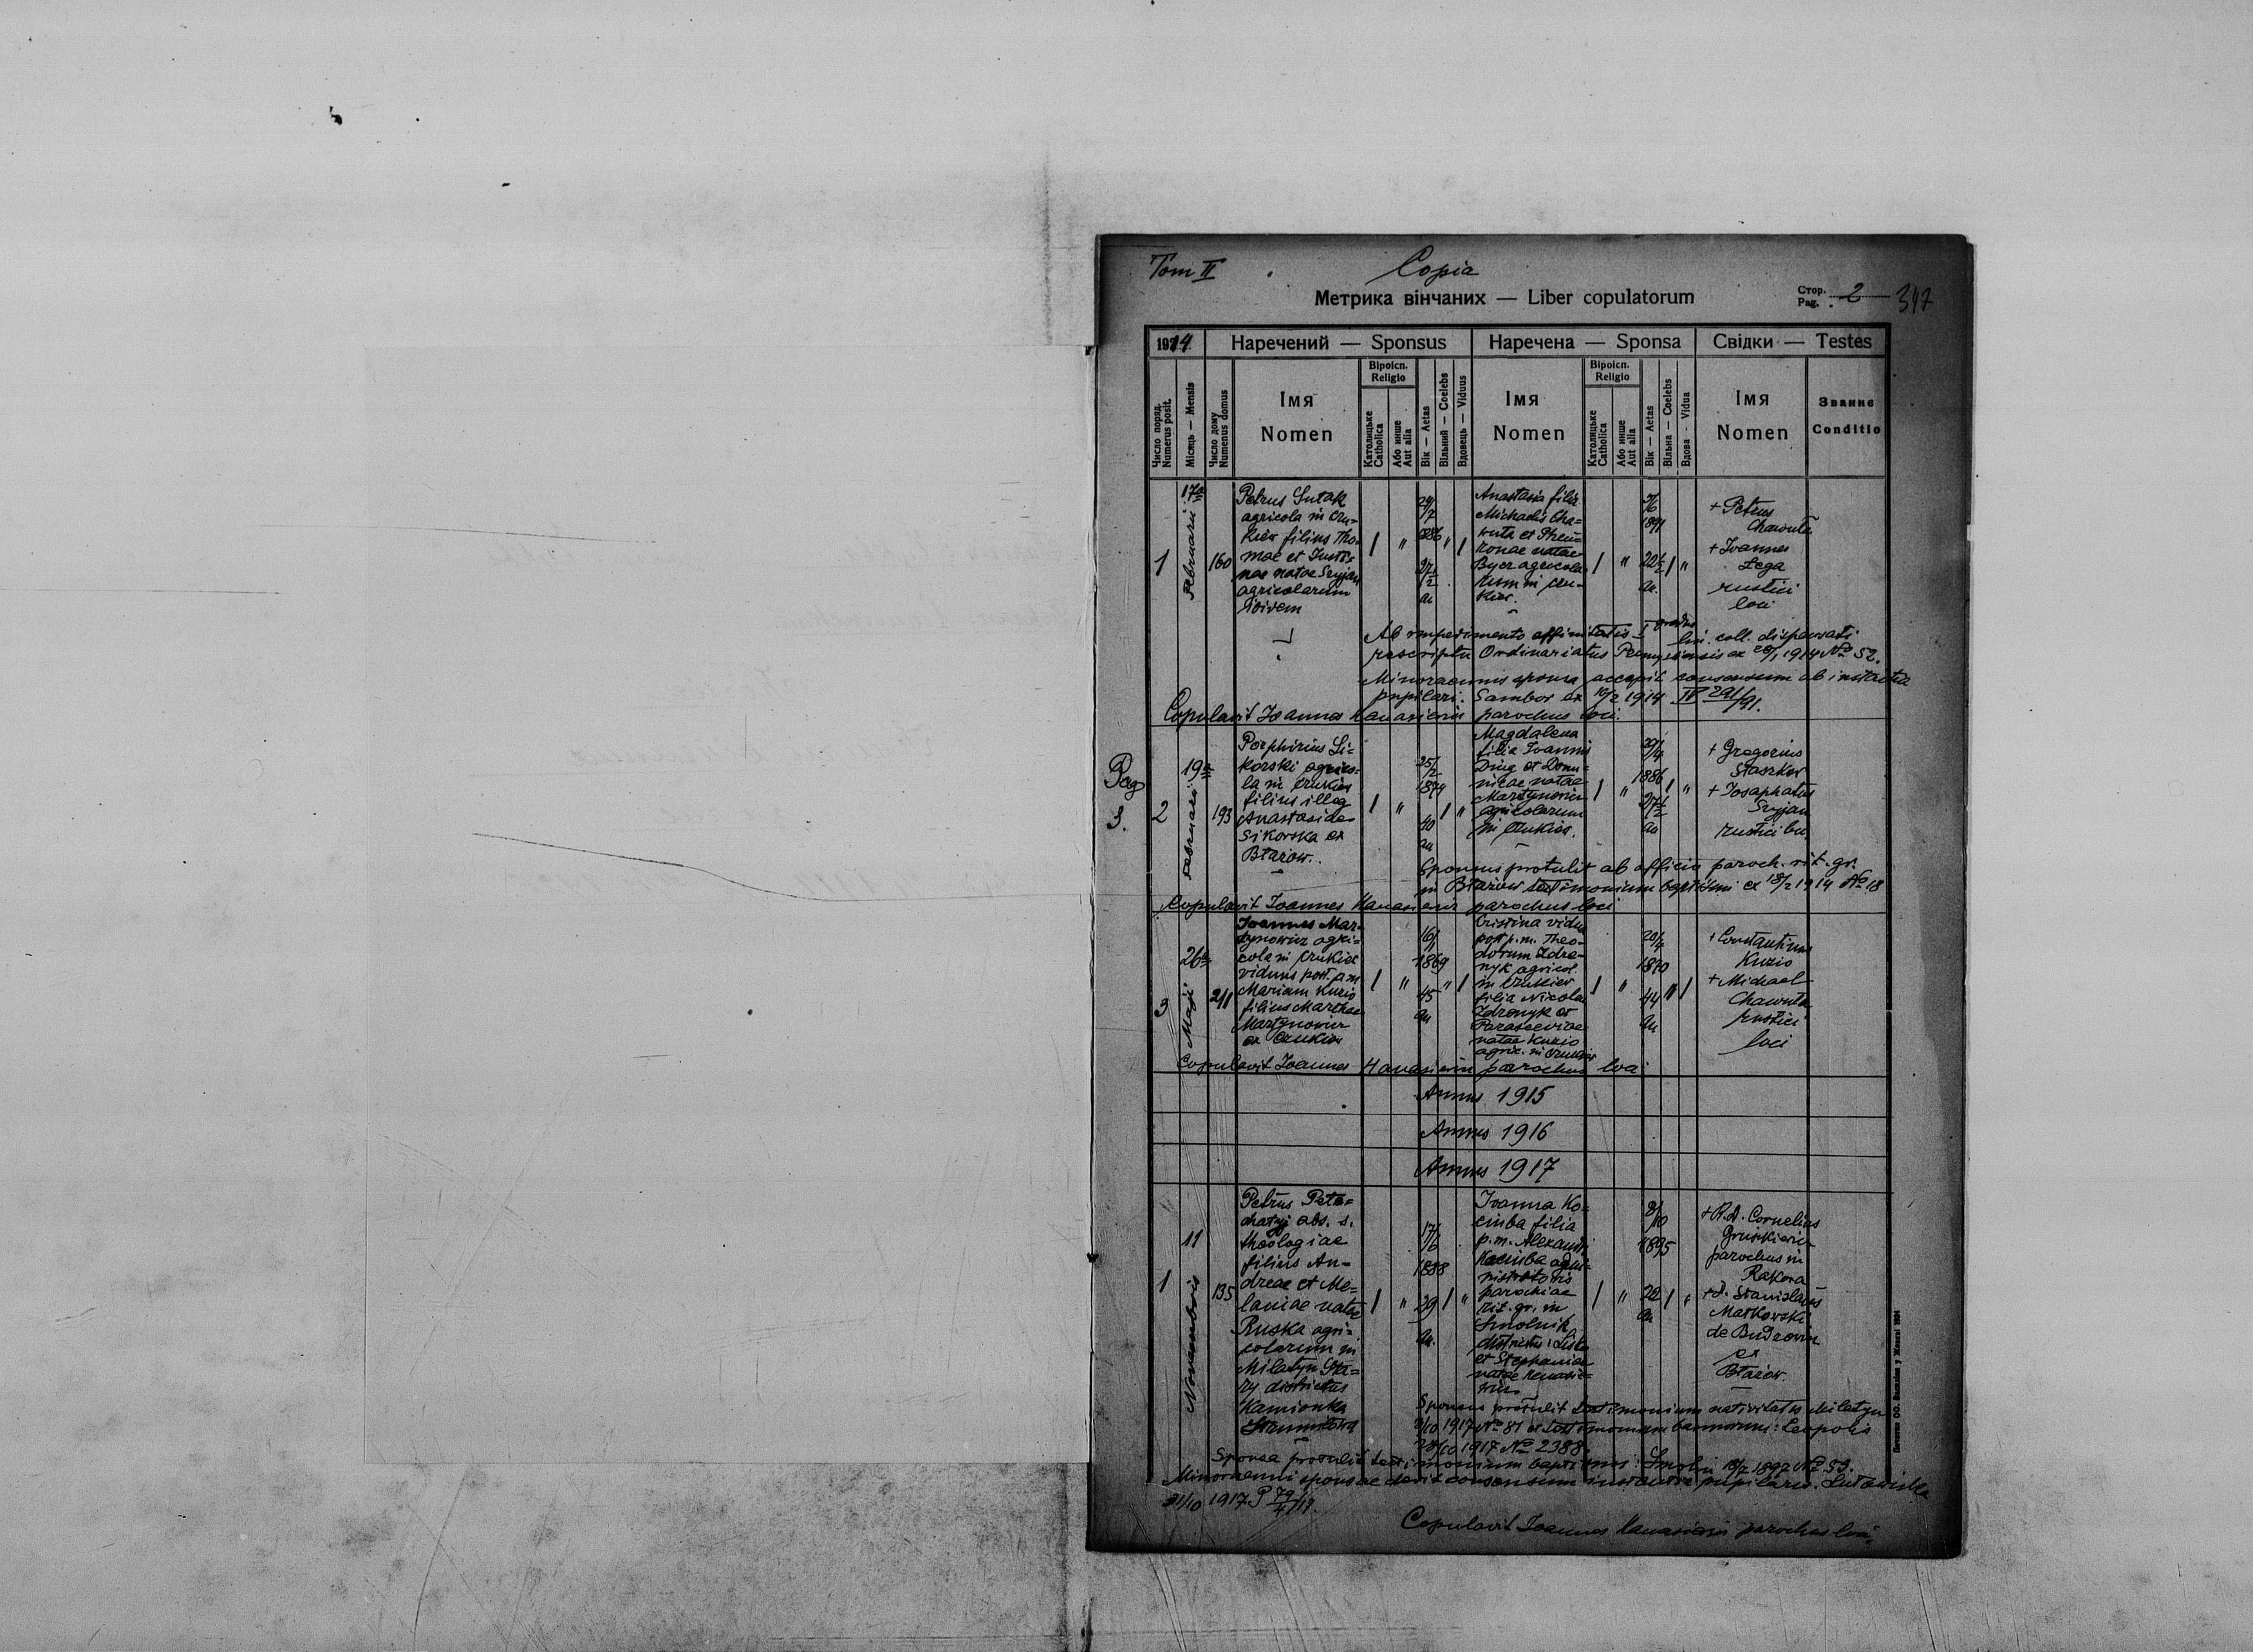 Tom II
Copia
Метрика вінчаних — Liber copulatorum
Стор.
Pag. 2
347
1914.
Наречений — Sponsus
Наречена — Sponsa
Свідки — Testes
Число поряд.
Numerus posit.
Місяць — Mensis
Число дому
Numenus domus
Імя
Nomen
Віроісп.
Religio
Католицьке
Catholica
Або инше
Aut alia
Вік — Aetas
Вільний — Coelebs
Вдовець — Viduus
Імя
Nomen
Віроісп.
Religio
Католицьке
Catholica
Або инше
Aut alia
Вік — Aetas
Вільна — Coelebs
Вдова - Vidua
Імя
Nomen
Званнє
Conditio
1
17a
Februarii
160
Petrus Sutak
agricola in Cru-
kier filius Tho-
mae et Justi-
nae natae Szyjan
agricolarum
ibidem
24/7
1886
27 1/2
an
Anastasia filia
Michaelis Cha-
wuta et Pheu-
ronae natae
Bycz agricola-
rum in Cru-
kier.
1891
22 1/2
an.
+ Petrus
Chawuta
+ Joannes
Lega
rustici
loci
Ab impedimento affinitatis I gradus lin. coll. dispensati
rescripto Ordinariatus Premysliensis ex 28/1 1914 No 52.
Minorennis sponsa accepit consensum ab instantia
pupilari. Sambor ex 16/2 1914 IV 291/91.
Copulavit Joannes parochus loci.
Pag
3.
2
19a
Februarii
193
Porphirius Si-
korski agrico-
la in Crukier
filius illeg
Anastasiae
Sikorska ex
Błażow.
25/2
1874
40
an
Magdalena
filia Joannis
Dmy et Domi-
nicae natae
Martynowicz
agricolarum
in Crukier.
29/4
1886
27 1/2
an
+ Gregorius
Staszkow
+ Josaphatus
Szyjan
rustici loci
Sponsus protulit ab officio paroch. rit. gr.
in Błażow testimonium baptismi ex 18/2 1914 No 18
Copulavit Joannes parochus loci
3
26a
Maji
211
Joannes Mar-
tynowicz agri-
cola in Crukier
viduus post p.m.
Mariam Kuzio
filius Marthae
Martynowicz
ex Crukier
16/1
1869
45
an
Cristina vidua
post p.m. Theo-
dorum Zdre-
nyk agricol.
in Crukier
filia Nicolai
Zdrenyk et
Parasceviae
natae Kuzio
agric. in Crukier
20/4
1870
44
an
+ Constantinus
Kuzio
+ Michael
Chawuta
rustici
loci
Copulavit Joannes parochus loci
Annus 1915
Annus 1916
Annus 1917
1
11
Novembris
135
Petrus Pete-
chatyj abs. s.
theologiae
filius An-
dreae et Me-
laniae natae
Ruska agri-
colarum in
Milatyn Sta-
ry districtus
Kamionka
Strumiłowa
17/6
1888
29
an.
Joanna Ko-
ciuba filia
p.m. Alexandri
Kociuba admi-
nistratoris
parochiae
rit. gr. in
Smolnik
districtus Lisko
et Stephaniae
natae
8/10
1895
22
an
+ R.D. Cornelius
parochus in
Rakowa
+ D. Stanislaus
Matkowski
de Budrowin
ex
Błażow.
Sponsus protulit testimonium nativitatis Milatyn
2/10 1917 No 81 et testimonium bannorum: Leopolis
28/10 1917 No 2388.
Sponsa protulit testimonium baptismi: Smolni 18/2 1897 No 59.
Minorenni sponsae dedit consensum instantia pupilaris. Lutowiska
31/10 1917 P
Copulavit Joannes parochus loci.